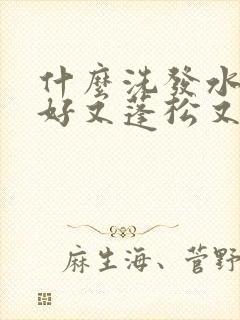 什麼洗發水
好又蓬松又
麻生海、菅野